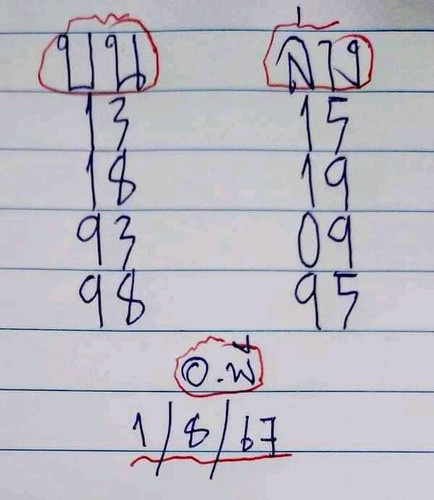 บน ล่าง
13 15
18 19
93 09
98 95
1/8/67